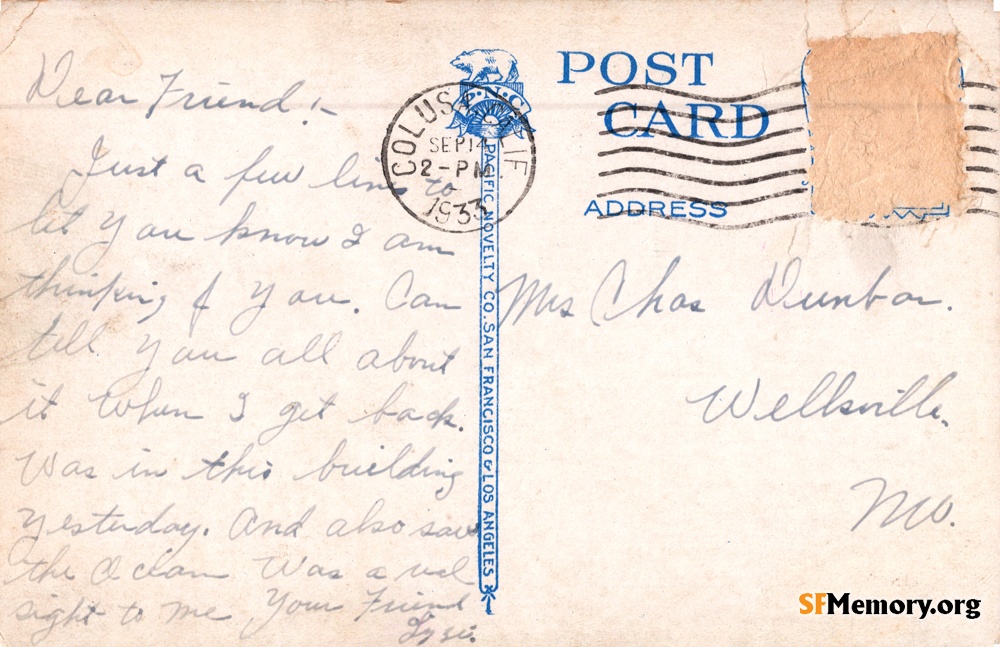 Dear Friend :-
Just a few lines to
let you know I am
thinking of you. Can
tell you all about
it when I get back.
Was in this building
yesterday. And also saw
the Ocean Was a
sight to me Your Friend
P.N.C.
COLUSA CALIF.
SEP 14
2 - PM
1933
PACIFIC NOVELTY CO. SAN FRANCISCO & LOS ANGELES
POST
CARD
ADDRESS
Mrs Chas Dunbar.
Wellsville,
Mo.
SFMemory.org